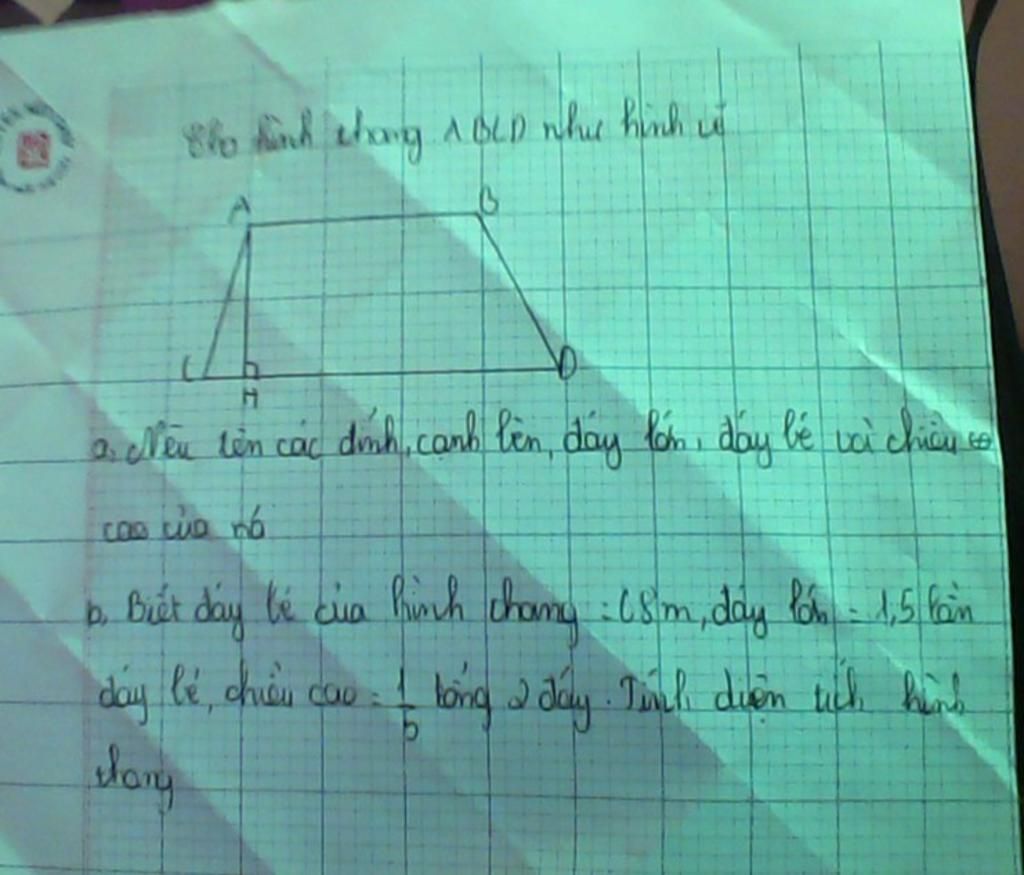 Cho hình thang ABCD như hình vẽ
A
B
C
H
D
a. Nêu tên các đỉnh, cạnh bên, đáy lớn, đáy bé và chiều
cao của nó
b. Biết đáy bé của hình thang = 68m, đáy lớn = 1,5 lần
đáy bé, chiều cao = 1/5 tổng 2 đáy. Tính diện tích hình
thang